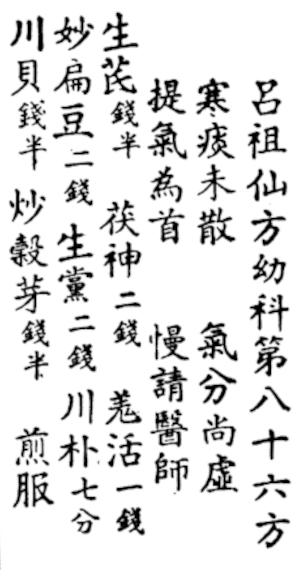 呂祖仙方幼科第八十六方
寒痰未散　氣分尚虛
提氣為首　慢請醫師
生芪錢半　茯神二錢　羗活一錢
妙扁豆二錢　生黨二錢　川朴七分
川貝錢半　炒穀芽錢半　煎服